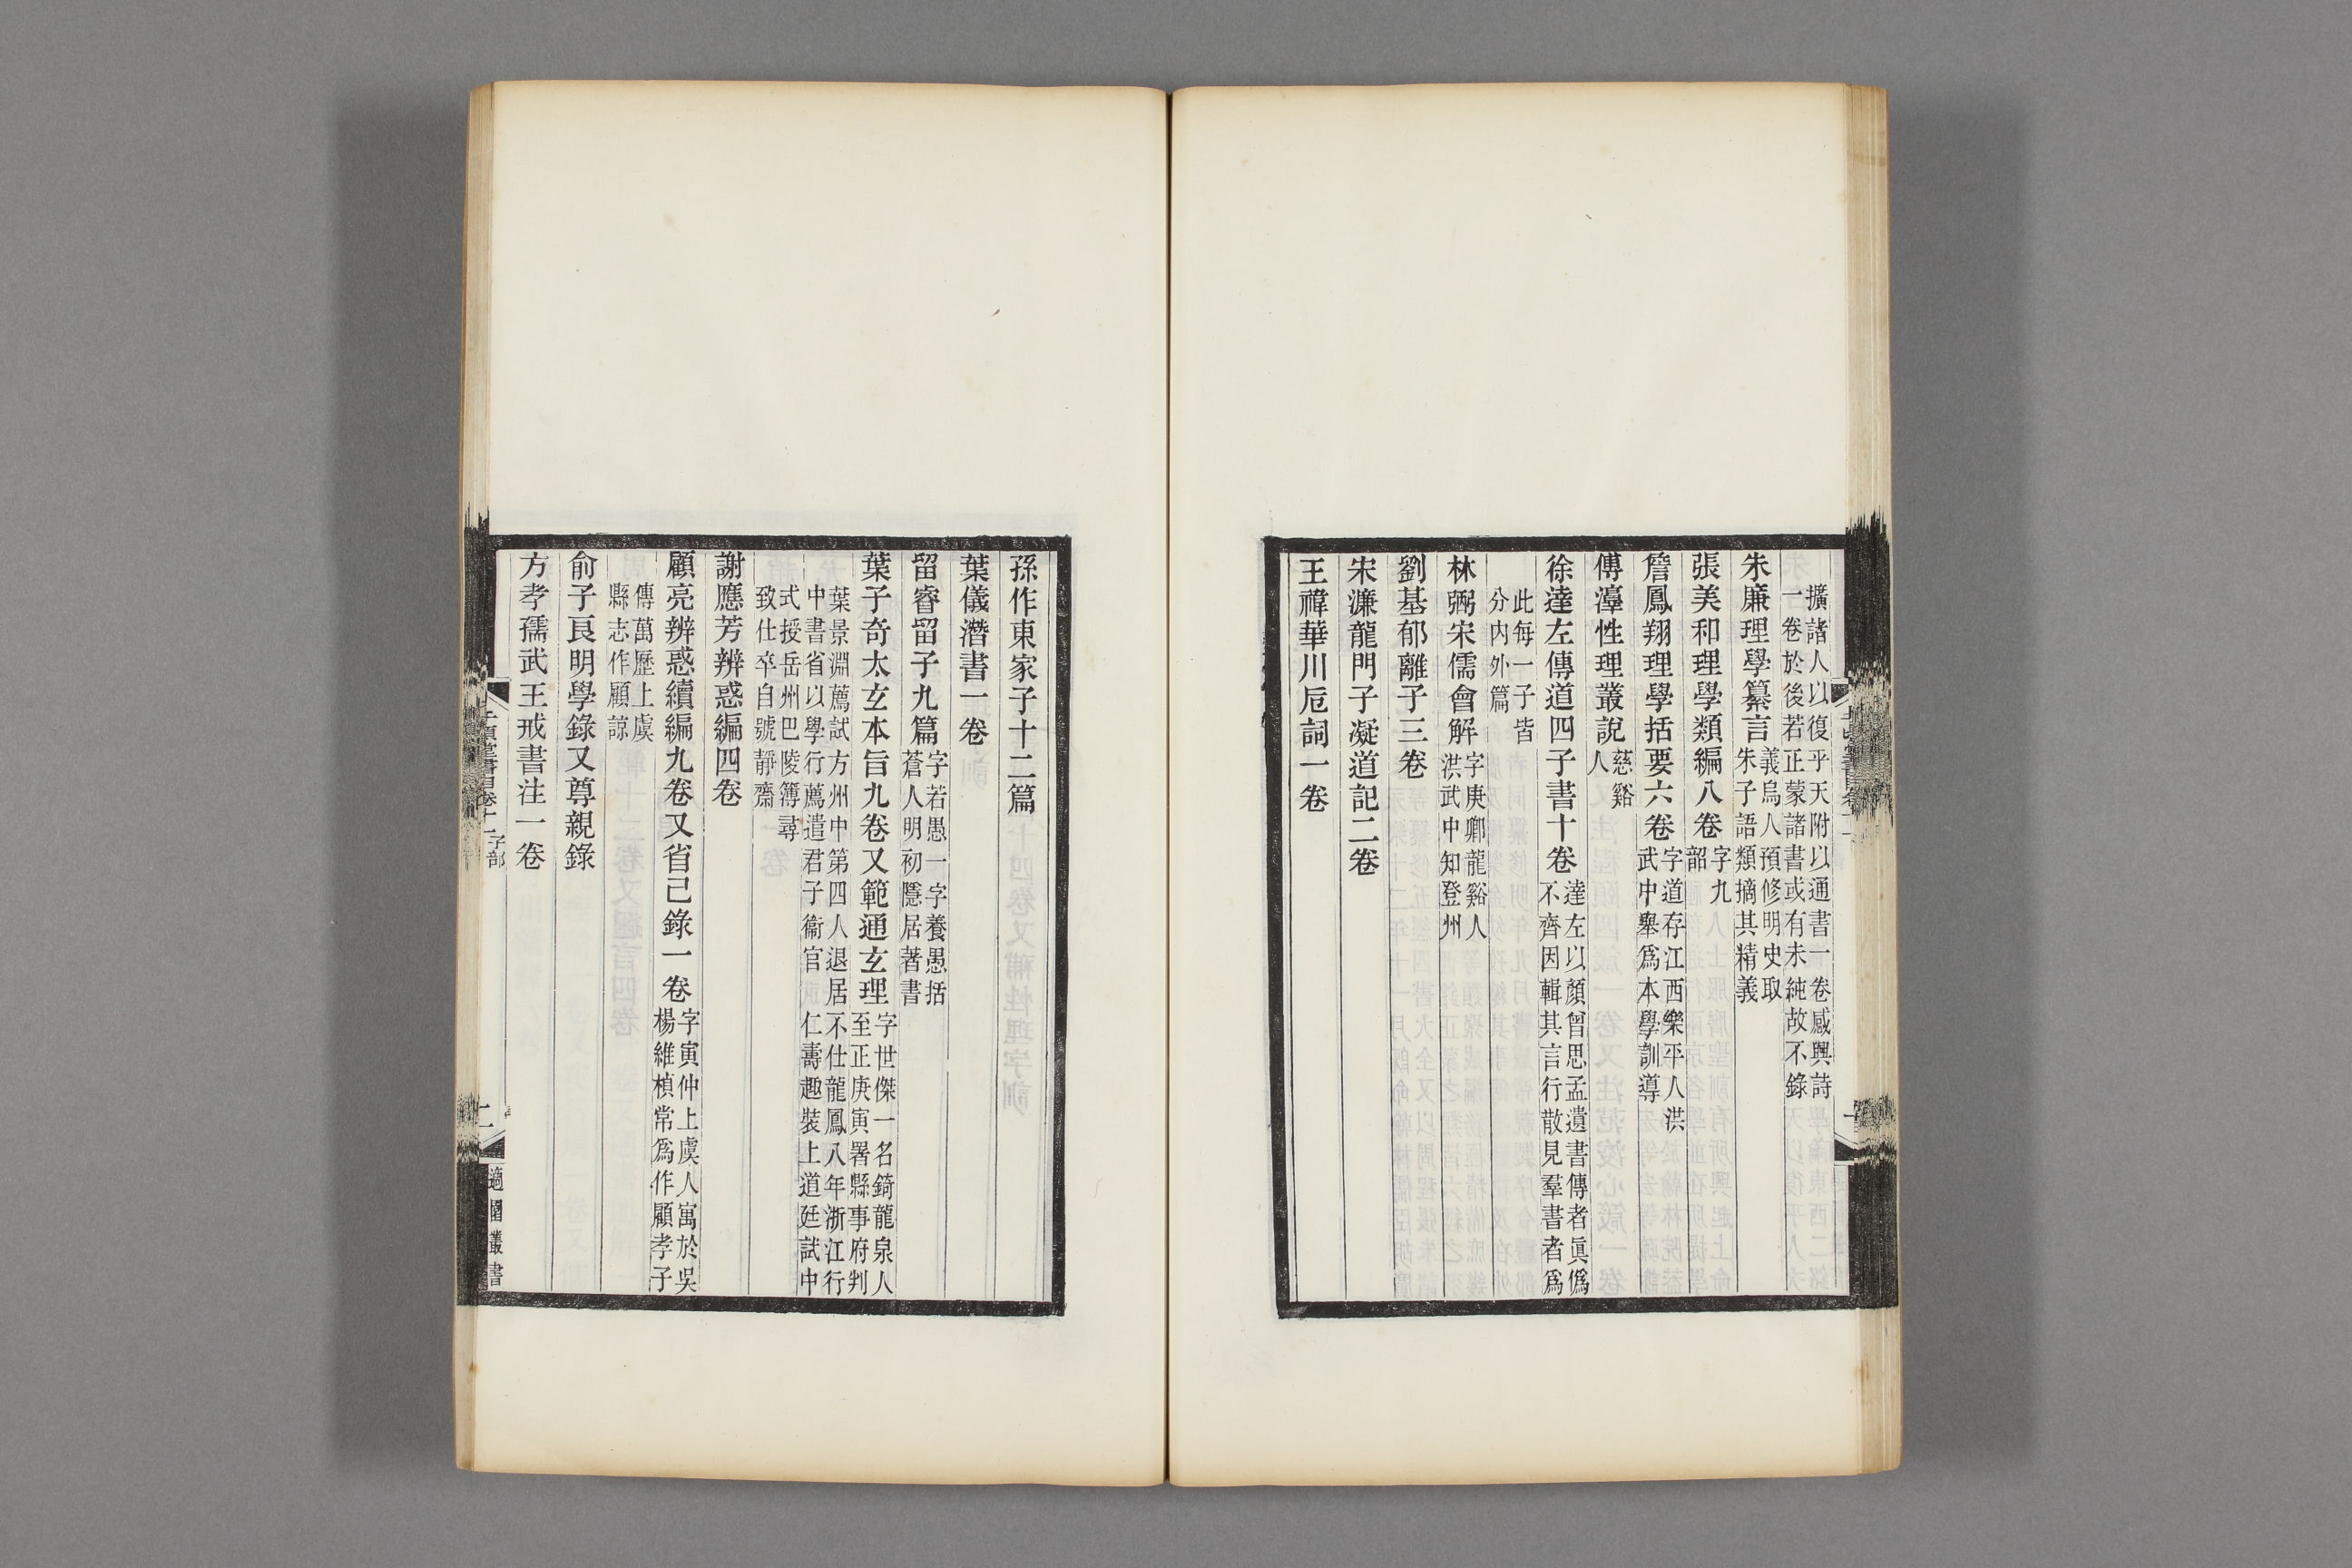 擴諸人以復乎天附以通書一卷感興詩
一卷於後若正蒙諸書或有未純故不錄
朱廉理學纂言義烏人預修明史取
朱子語類摘其精義
張美和理學類編八卷字九
韶
詹鳳翔理學括要六卷字道存江西樂平人洪
武中舉爲本學訓導
傅濬性理叢說慈谿
人
徐達左傳道四子書十卷達左以顏曾思孟遺書傳者眞僞
不齊因輯其言行散見羣書者爲
此每一子皆
分內外篇
林弼宋儒會解字庚卿龍谿人
洪武中知登州
劉基郁離子三卷
宋濂龍門子凝道記二卷
王禕華川卮詞一卷
孫作東家子十二篇
葉儀潛書一卷
留睿留子九篇字若愚一字養愚括
蒼人明初隱居著書
葉子奇太玄本旨九卷又範通玄理字世傑一名錡龍泉人
至正庚寅署縣事府判
葉景淵薦試方州中第四人退居不仕龍鳳八年浙江行
中書省以學行薦遣君子衞官仁壽趣裝上道廷試中
式授岳州巴陵簿尋
致仕卒自號靜齋
謝應芳辨惑編四卷
顧亮辨惑續編九卷又省己錄一卷字寅仲上虞人寓於吳
楊維楨常爲作顧孝子
傳萬歷上虞
縣志作顧諒
俞子良明學錄又尊親錄
方孝孺武王戒書注一卷
千頃堂書目卷十一 子部
二
適園叢書